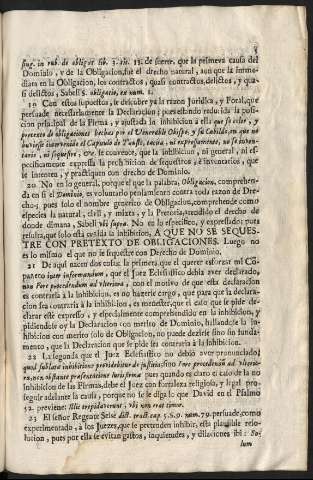 5
aug. in rub. de obligat lib. 3. tit. 15. de fuerte, que la primera causa del
Dominio, y de la Obligacion, sie el derecho natural, aunque la imme-
diata en la Obligacion, los contractos, quasi contractos, delictos, y qua-
si delictos, Sabell §. obligatio, ex num. 1.
19 Con estos supuestos, se descubre ya la razon Juridica, y Foral, que
persuade necessariamente la Declaracion; pues siendo reducida la posi-
cion principal de la Firma, y ajustada la inhibicion à ella que so color, y
pretexto de obligaciones hechas por el Venerable Obispo, y su Cabildo, en que no
huviesse intervenido el Capitulo de Tauste, tacita, ni expressamente, no se inven-
tarie, ni sequestre, &c. se convence, que la inhibicion, ni general, ni es-
pecificamente expressa la prohibicion de sequestros, è inventarios, que
se intenten, y practiquen con drecho de Dominio.
20 No en lo general, porque el que la palabra, Obligacion, comprehen-
da en si el Dominio, es voluntario pensamiento contra toda razon de Dre-
cho; pues solo el nombre generico de Obligacion, comprehende como
especies la natural, civil, y mixta, y la Pretoria, atendido el drecho de
donde dimana, Sabell vbi supra. No en lo especifico, y expressado; pues
resulta, que solo està ceñida la inhibicion, A QUE NO SE SEQUES-
TRE CON PRETEXTO DE OBLIGACIONES. Luego no
es lo mismo el que no se sequestre con Derecho de Dominio.
21 De aqui nacen dos cosas: la primera, que el querer esforzar mi Cõ-
pañero in ius informandum, que el Juez Eclesiastico debia aver declarado,
non Fore procedendum ad vlteriora, con el motivo de que esta declaracion
es contraria à la inhibicion, es no hazerse cargo, que para que la declara-
cion sea contraria à la inhibicion, es menester, que el caso que se pide de-
clarar estè expressado, y especialmente comprehendido en la inhibicion, y
pidiendose oy la Declaracion con merito de Dominio, hallandose la in-
hibicion con merito solo de Obligacion, no puede dezirse sino sin funda-
mento, que la Declaracion que se pide sea contraria à la inhibicion.
22 La segunda que el Juez Eclesiastico no debiò aver pronunciado,
quod sublata inhibitione providebitur de iustitia, sino Fore procedendum ad vlterio-
ra, non obstante præsentatione Iurisfirmæ pues quando es claro el caso de la no
inhibicion de las Firmas, debe el Juez con fortaleza religiosa, y legal pro-
seguir adelante la causa, porque no se le diga lo que David en el Psalmo
52. previene: Illic trepidaverunt, vbi non erat timor.
23 El señor Regente Sesse dict. tract. cap. 5. §. 9. num. 79. persuade, como
experimentado, à los Juezes, que se pretenden inhibir, esta plausible reso-
lucion, pues por ella se evitan gastos, inquietudes, y dilaciones ibi: So-
lum